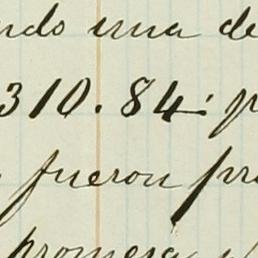 ndo una de
310.84: p
fueron pr
promesa